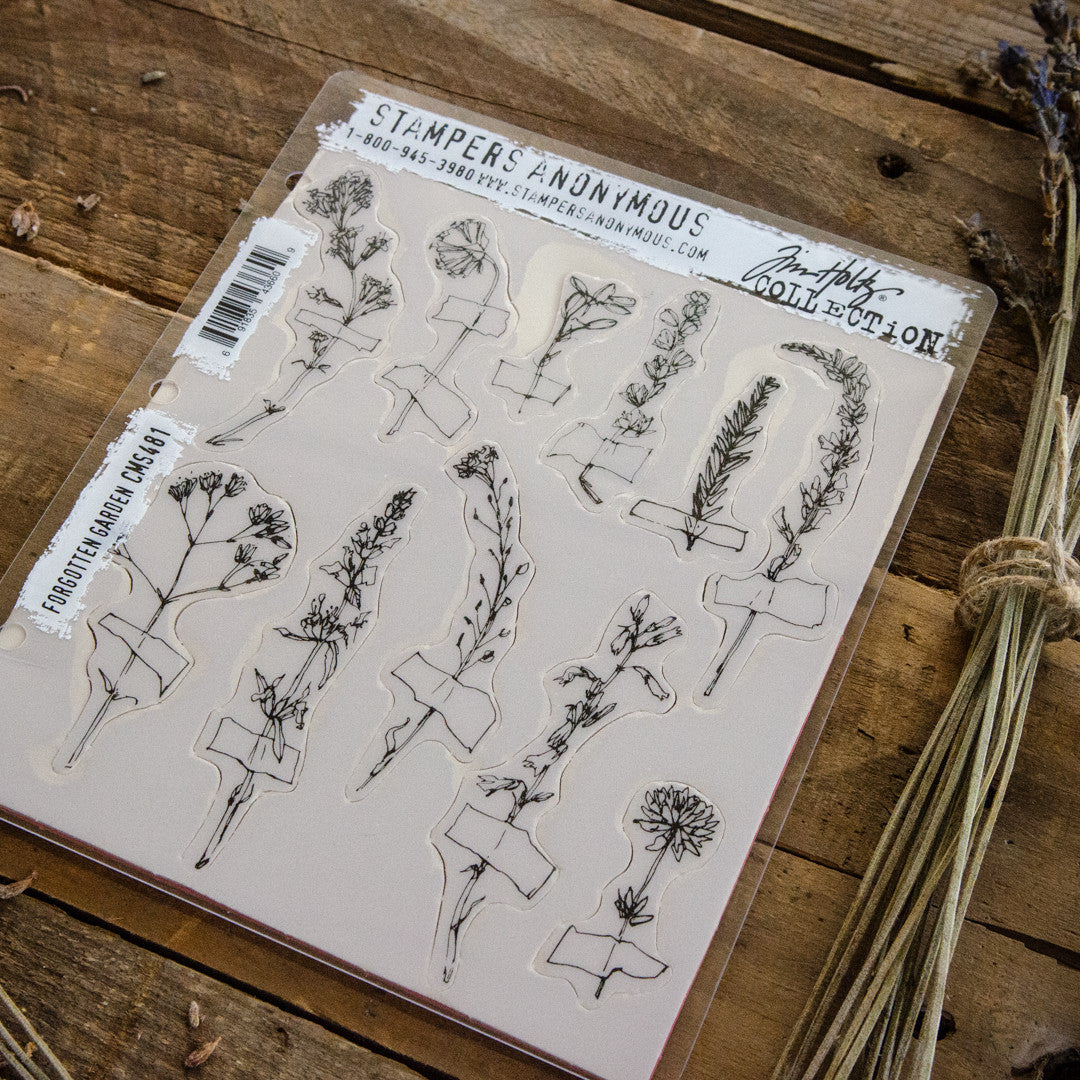 STAMPERS ANONYMOUS
1-800-945-3980 WWW.STAMPERSANONYMOUS.COM
Tim Holtz®
COLLECTiON
6 91835 43660 9
FORGOTTEN GARDEN CMS481